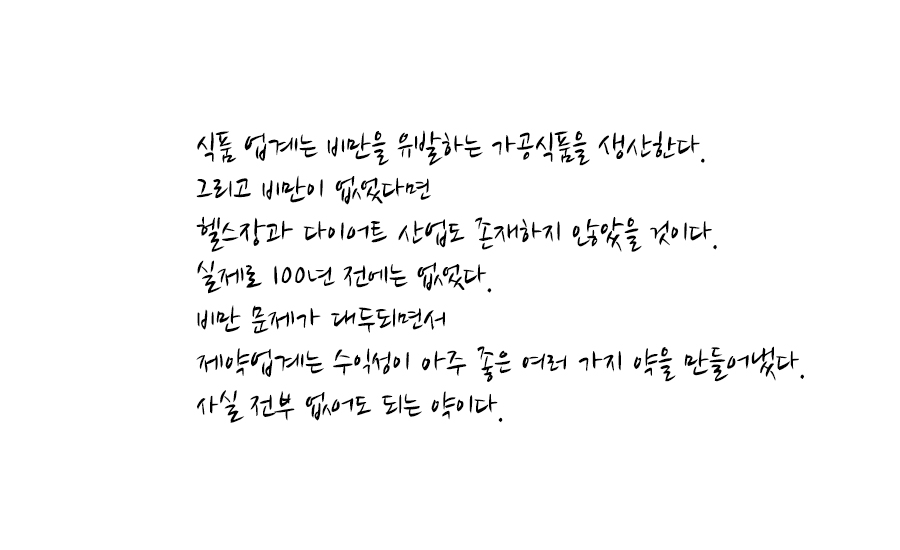 식품 업계는 비만을 유발하는 가공식품을 생산한다.
그리고 비만이 없었다면
헬스장과 다이어트 산업도 존재하지 않았을 것이다.
실제로 100년 전에는 없었다.
비만 문제가 대두되면서
제약업계는 수익성이 아주 좋은 여러 가지 약을 만들어냈다.
사실 전부 없어도 되는 약이다.